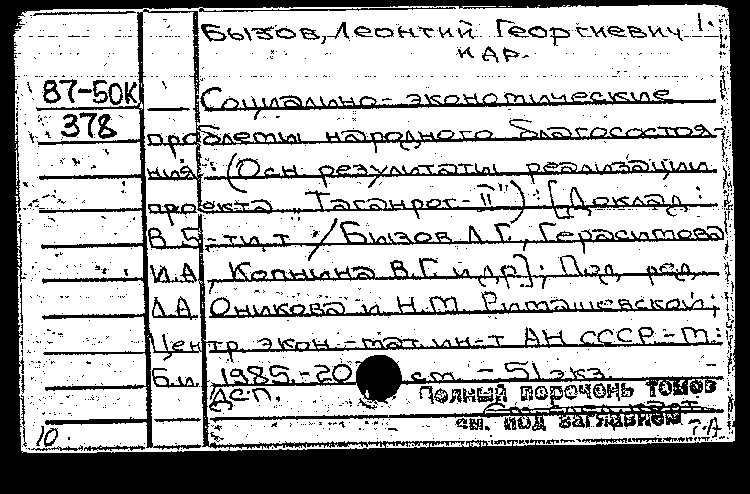 Бызов, Леонтий Георгиевич 1.
и др.
87-50К Социально-экономические
378 проблемы народного благосостоя-
ния: (Осн. результаты реализации
проекта „Таганрог-II") : [Доклад :
В 5-ти т. / Бызов Л.Г., Герасимова
И.А., Копнина В.Г. и др.]; Под ред.
Л.А. Оникова и Н.М. Римашевской;
Центр. экон.-мат. ин-т АН СССР.-М.:
Б.и. 1985.-20 см. - 51 экз.
ДСП.
Полный перечень томов
см. под заглавием
10 Р-А